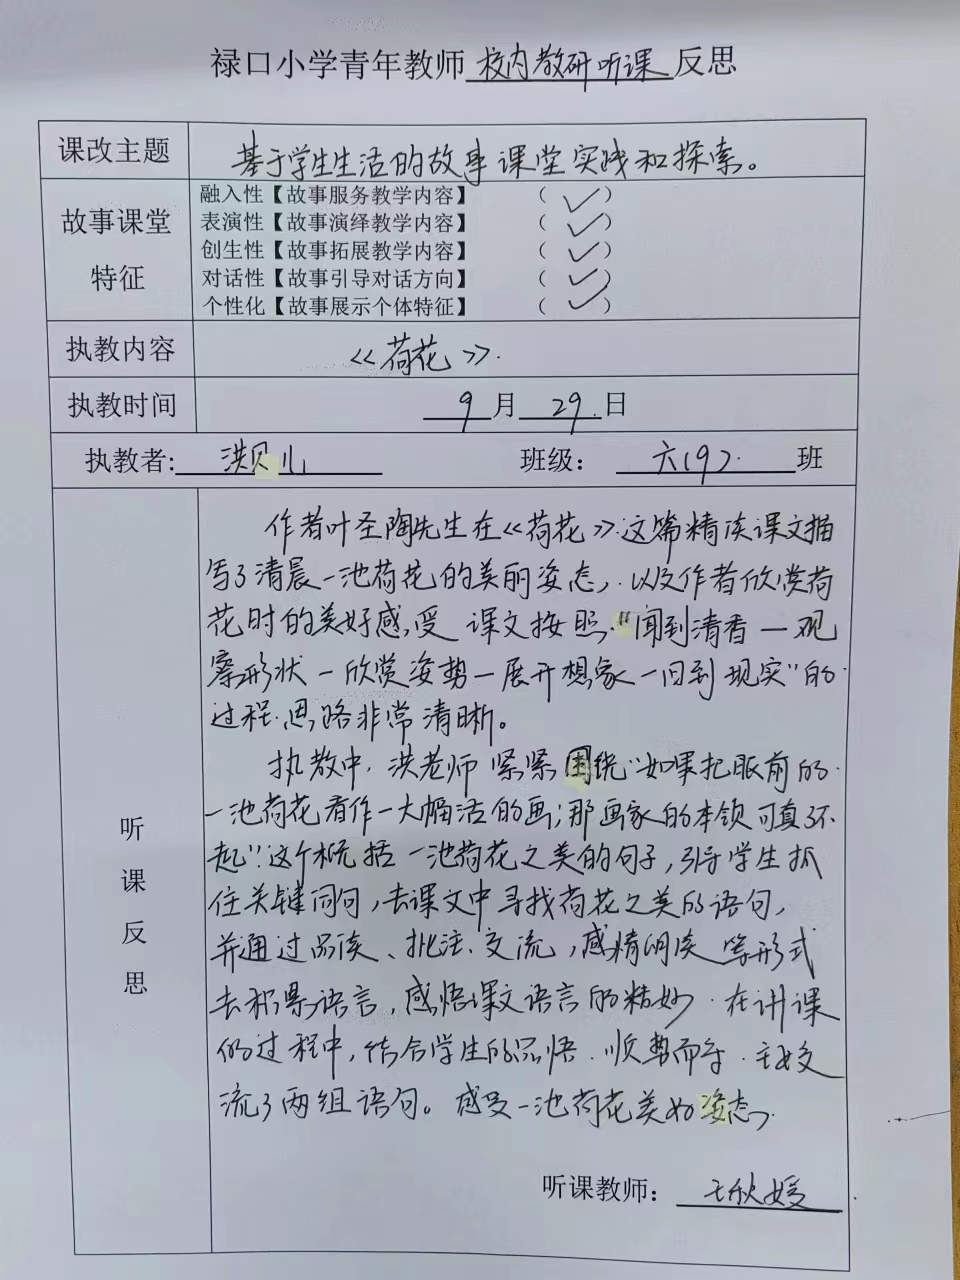 禄口小学青年教师校内教研听课反思
课改主题 基于学生生活的故事课堂实践和探索。
故事课堂特征
融入性【故事服务教学内容】 （ ✓ ）
表演性【故事演绎教学内容】 （ ✓ ）
创生性【故事拓展教学内容】 （ ✓ ）
对话性【故事引导对话方向】 （ ✓ ）
个性化【故事展示个体特征】 （ ✓ ）
执教内容 《荷花》.
执教时间 9月29.日
执教者: 洪贝儿 班级： 六(9). 班
听课反思
作者叶圣陶先生在《荷花》这篇精读课文描
写了清晨一池荷花的美丽姿态，以及作者欣赏荷
花时的美好感受 课文按照“闻到清香—观
察形状—欣赏姿势—展开想象—回到现实”的
过程.思路非常清晰。
执教中，洪老师紧紧围绕“如果把眼前的
一池荷花看作一大幅活的画；那画家的本领可真了不
起”这个概括一池荷花之美的句子，引导学生抓
住关键问句，去课文中寻找荷花之美的语句，
并通过品读、批注、交流，感情朗读等形式
去积累语言，感悟课文语言的精妙.在讲课
的过程中，结合学生的品悟.顺势而导.主要交
流了两组语句。感受一池荷花美的姿态，
听课教师： 王秋媛